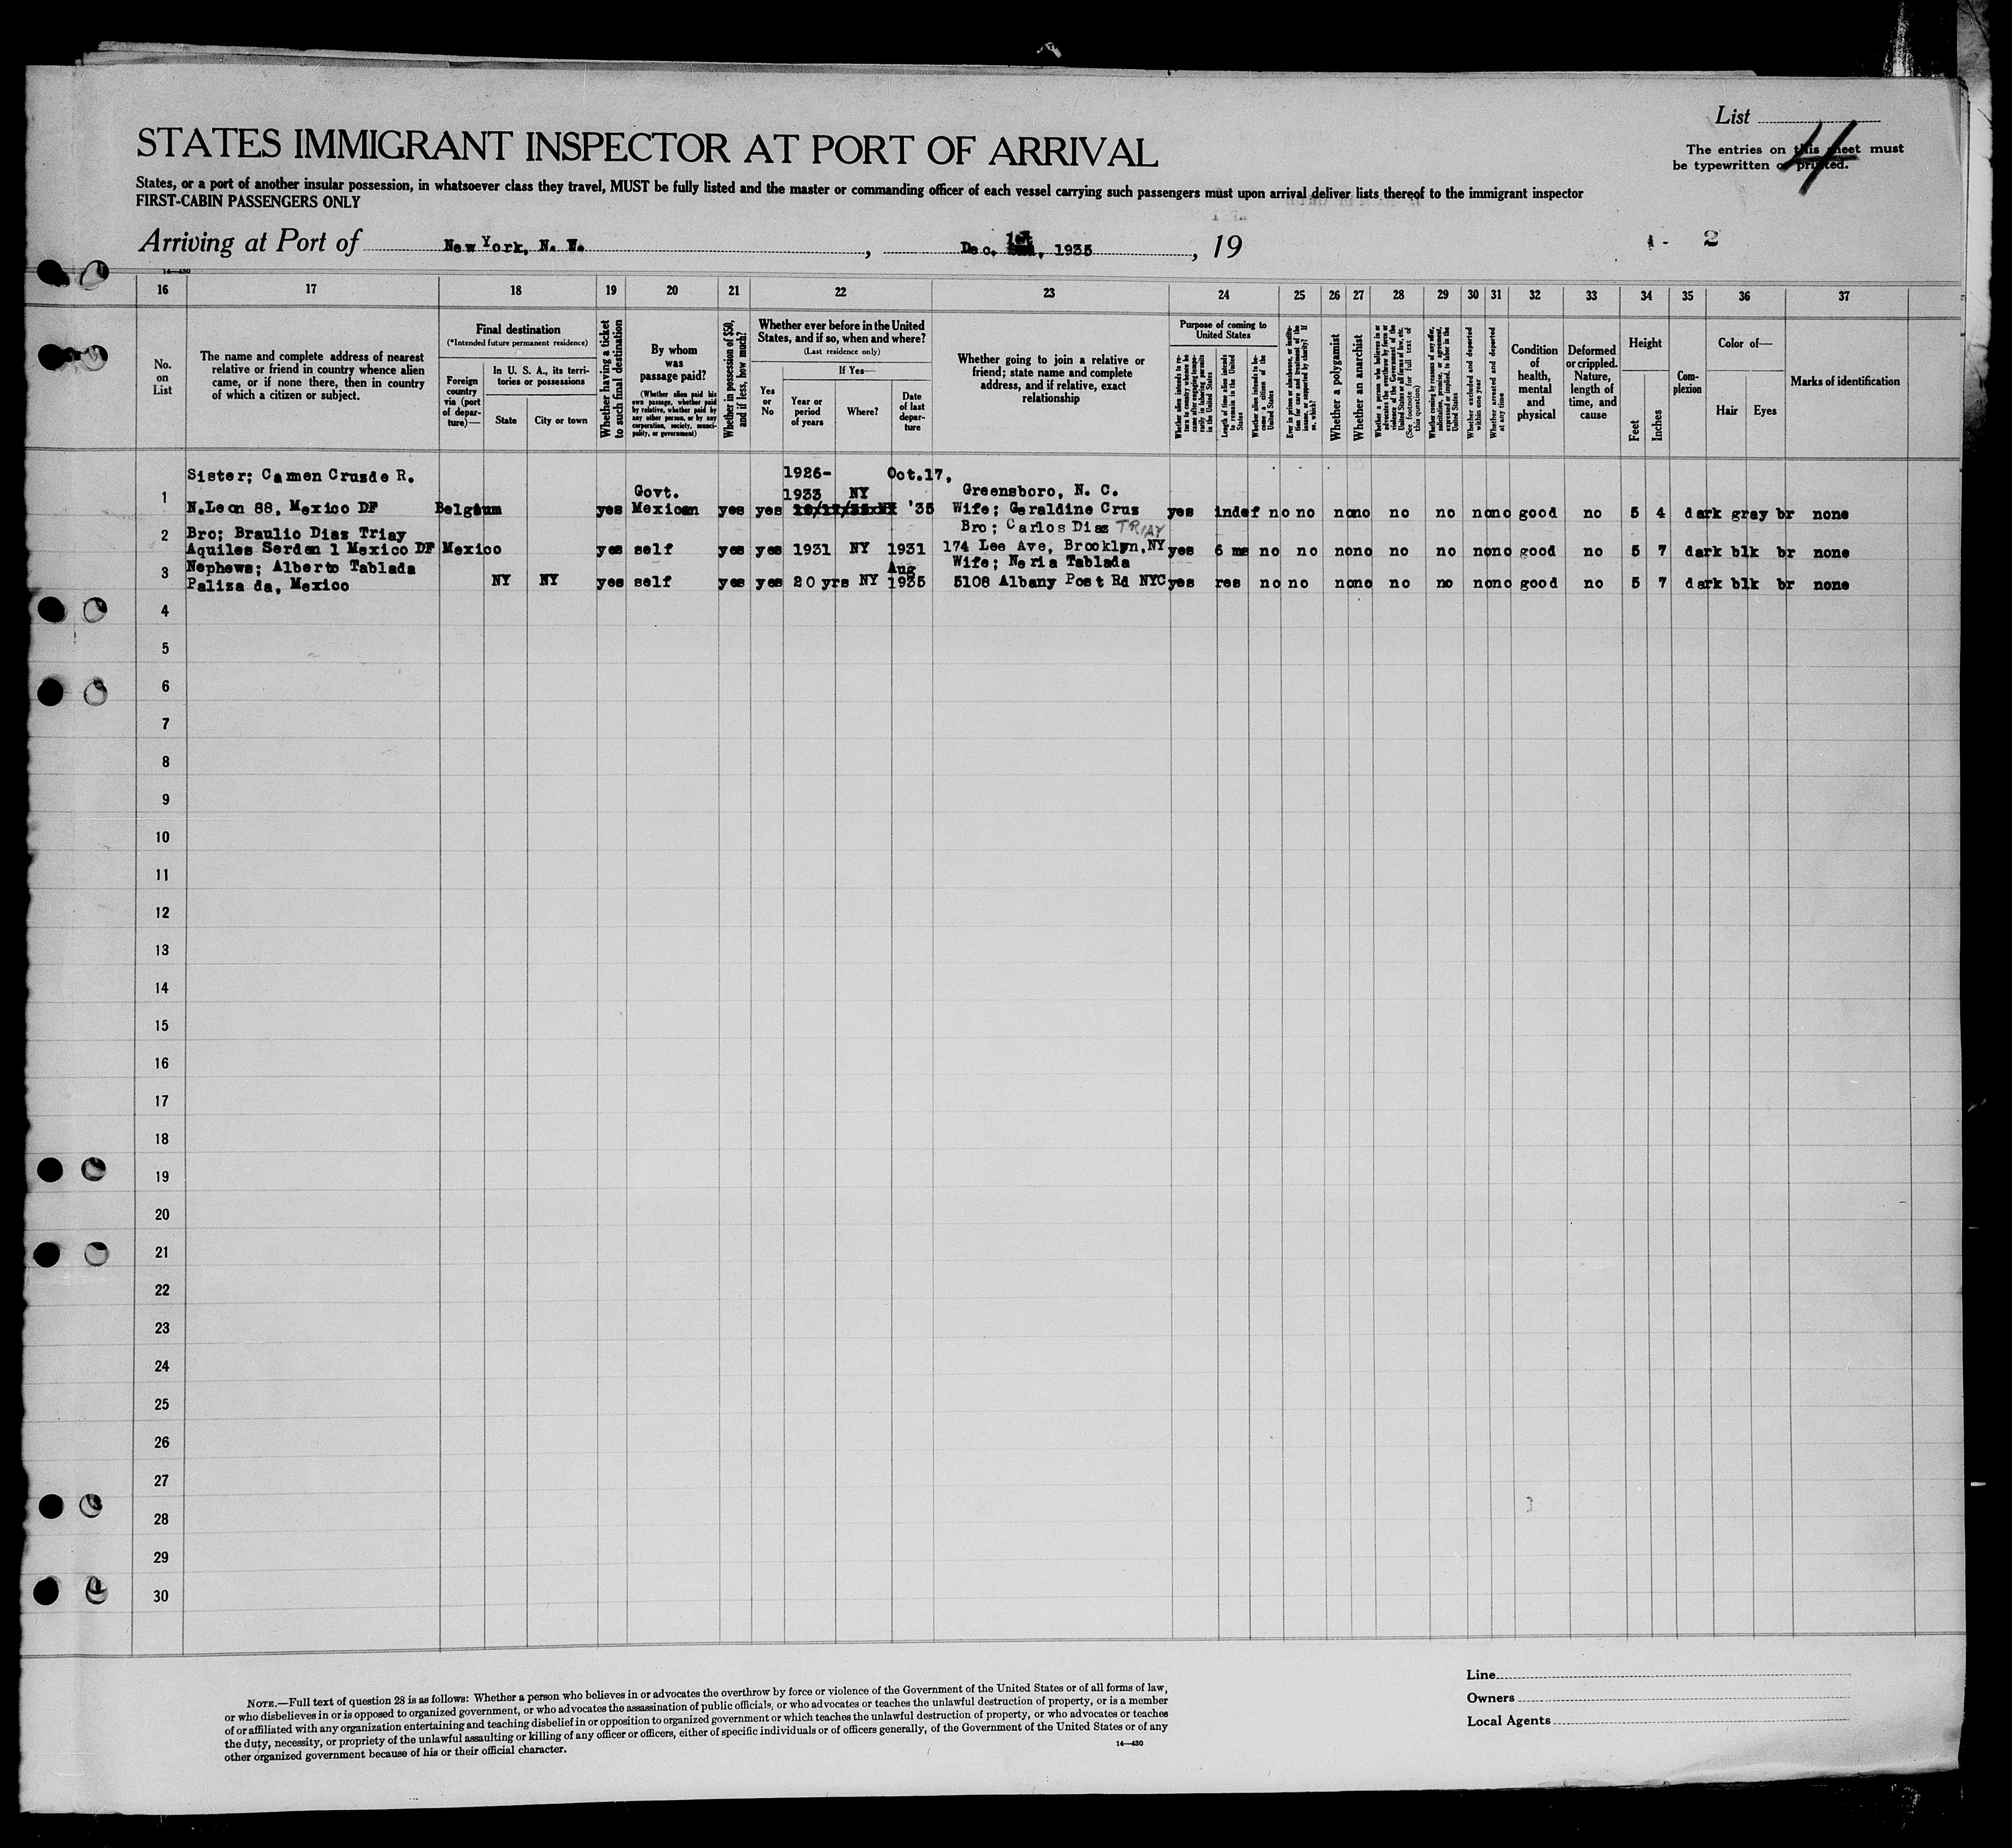 List
The entries on this sheet must
be typewritten or printed.
4
STATES IMMIGRANT INSPECTOR AT PORT OF ARRIVAL
States, or a port of another insular possession, in whatsoever class they travel, MUST be fully listed and the master or commanding officer of each vessel carrying such passengers must upon arrival deliver lists thereof to the immigrant inspector
FIRST-CABIN PASSENGERS ONLY
Arriving at Port of New York, N. Y. , Dec. 1st, 1935 , 19
2
14—430
16 17 18 19 20 21 22 23 24 25 26 27 28 29 30 31 32 33 34 35 36 37
No. on List
The name and complete address of nearest relative or friend in country whence alien came, or if none there, then in country of which a citizen or subject.
Final destination
(*Intended future permanent residence)
Foreign country via (port of departure)—
In U. S. A., its territories or possessions
State
City or town
Whether having a ticket to such final destination
By whom was passage paid?
(Whether alien paid his own passage, whether paid by relative, whether paid by any other person, or by any corporation, society, municipality, or government)
Whether in possession of $50, and if less, how much?
Whether ever before in the United States, and if so, when and where?
(Last residence only)
Yes or No
If Yes—
Year or period of years
Where?
Date of last departure
Whether going to join a relative or friend; state name and complete address, and if relative, exact relationship
Purpose of coming to United States
Whether alien intends to return to country whence he came after engaging temporarily in laboring pursuits in the United States
Length of time alien intends to remain in the United States
Whether alien intends to become a citizen of the United States
Ever in prison or almshouse, or institution for care and treatment of the insane, or supported by charity? If so, which?
Whether a polygamist
Whether an anarchist
Whether a person who believes in or advocates the overthrow by force or violence of the Government of the United States or all forms of law, etc. (See footnote for full text of this question)
Whether coming by reason of any offer, solicitation, promise, or agreement, expressed or implied, to labor in the United States
Whether excluded and deported within one year
Whether arrested and deported at any time
Condition of health, mental and physical
Deformed or crippled. Nature, length of time, and cause
Height
Feet
Inches
Complexion
Color of—
Hair
Eyes
Marks of identification
Sister; Camen Cruzde R. 1926- Oct.17,
1 Govt. 1933 NY Greensboro, N. C.
N.Leon 88, Mexico DF Belgium yes Mexican yes yes '35 Wife; Geraldine Cruz yes indef no no no no no no no no good no 5 4 dark gray br none
2 Bro; Braulio Diaz Triay Bro; Carlos Diaz TRIAY
Aquiles Serdan 1 Mexico DF Mexico yes self yes yes 1931 NY 1931 174 Lee Ave, Brooklyn, NY yes 6 ms no no no no no no no no good no 5 7 dark blk br none
3 Nephews; Alberto Tablada Aug Wife; Neria Tablada
Palizada, Mexico NY NY yes self yes yes 20 yrs NY 1935 5108 Albany Post Rd NYC yes res no no no no no no no no good no 5 7 dark blk br none
4
5
6
7
8
9
10
11
12
13
14
15
16
17
18
19
20
21
22
23
24
25
26
27
28
29
30
NOTE.—Full text of question 28 is as follows: Whether a person who believes in or advocates the overthrow by force or violence of the Government of the United States or of all forms of law,
or who disbelieves in or is opposed to organized government, or who advocates the assassination of public officials, or who advocates or teaches the unlawful destruction of property, or is a member
of or affiliated with any organization entertaining and teaching disbelief in or opposition to organized government or which teaches the unlawful destruction of property, or who advocates or teaches
the duty, necessity, or propriety of the unlawful assaulting or killing of any officer or officers, either of specific individuals or of officers generally, of the Government of the United States or of any
other organized government because of his or their official character.
14—430
Line
Owners
Local Agents